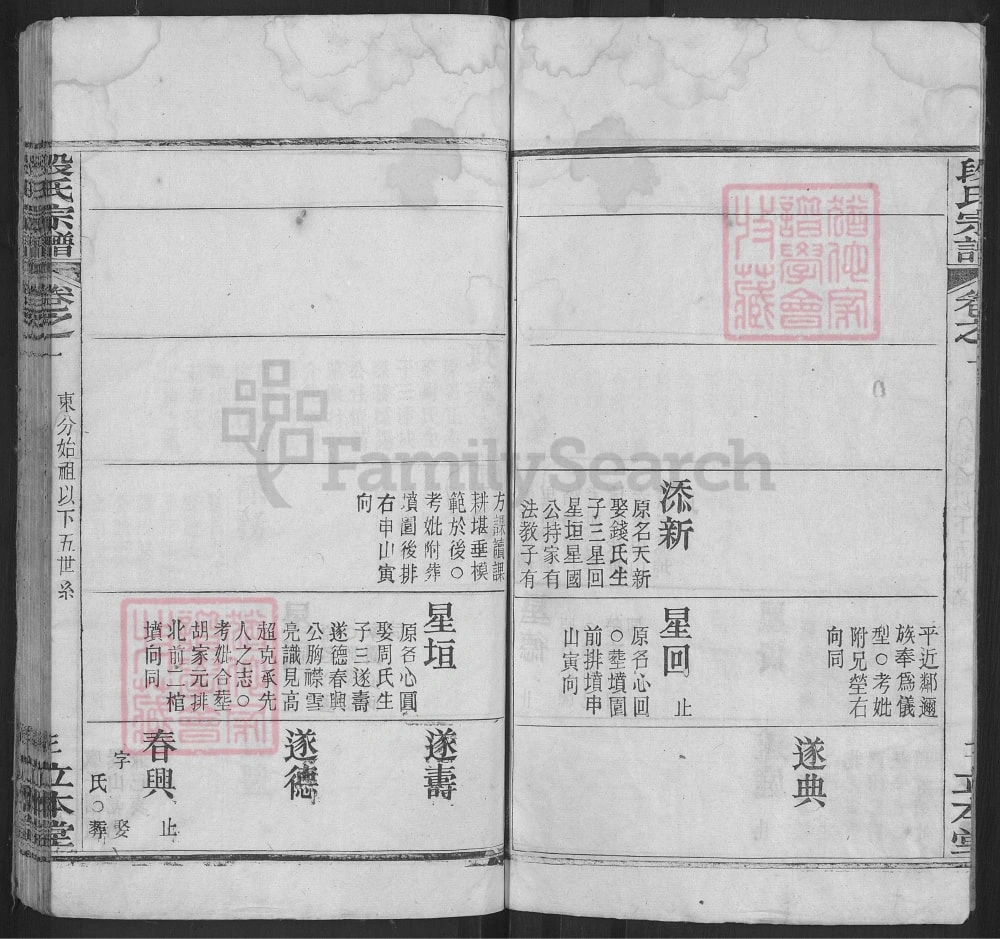 段氏宗譜
卷之一
立本堂
平近鄰邇
族奉爲儀
型○考妣
附兄塋右
向同
遂典
添新
原名天新
娶錢氏生
子三星回
星垣星國
公持家有
法教子有
方課讀課
耕堪垂模
範於後○
考妣附葬
墳園後排
右申山寅
向
星回
止
原名心回
○塟墳園
前排墳申
山寅向
星垣
原名心圓
娶周氏生
子三遂壽
遂德春興
公胸襟雪
亮識見高
超克承先
人之志○
考妣合塟
胡家元排
北前二棺
墳向同
遂壽
遂德
春興
止
字
娶
氏○葬
段氏宗譜
卷之一
東分始祖以下五世系
立本堂
猶他家
譜學會
收藏
FamilySearch